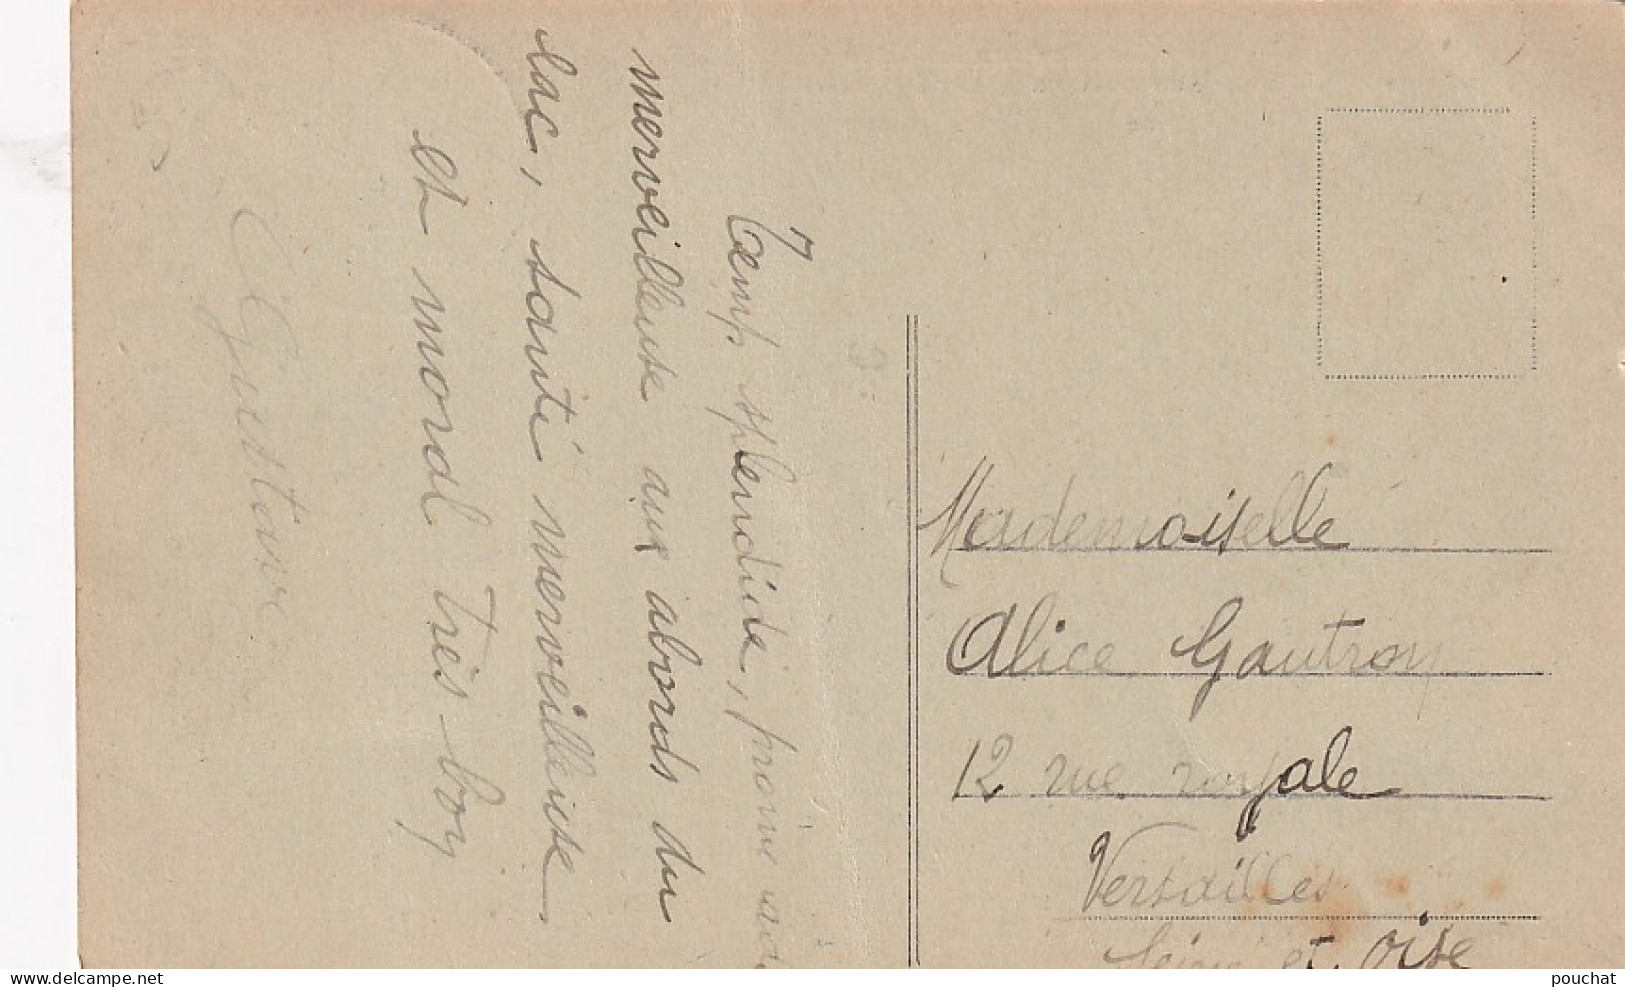 Temps splendide,
merveilleuse aux abords du
lac, santé merveilleuse
et moral très boy
Gustave
Mademoiselle
Alice Gautron
12 rue royale
Versailles
Seine et Oise
www.delcampe.net
pouchat